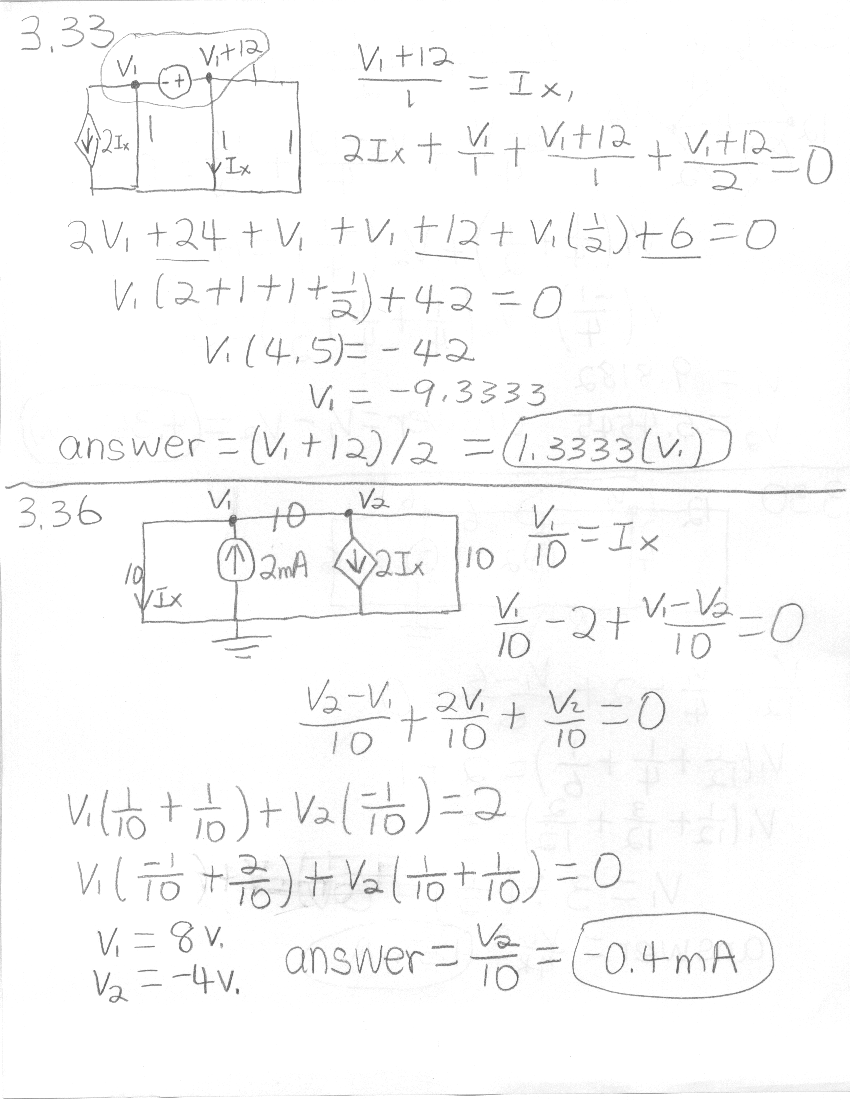 3.33
V₁ V₁+12
- +
2Ix 1 1 Ix 1 1
(V₁+12)/1 = Ix,
2Ix + V₁/1 + (V₁+12)/1 + (V₁+12)/2 = 0
2V₁ +24 + V₁ + V₁ +12 + V₁(1/2) +6 = 0
V₁(2+1+1+1/2)+42 = 0
V₁(4.5)= -42
V₁ = -9.3333
answer = (V₁+12)/2 = 1.3333(V.)
3.36
V₁ 10 V2
10 Ix 2mA 2Ix 10
V₁/10 = Ix
V₁/10 - 2 + (V₁-V₂)/10 = 0
(V₂-V₁)/10 + 2V₁/10 + V₂/10 = 0
V₁(1/10 + 1/10) + V₂(-1/10) = 2
V₁(-1/10 + 2/10) + V₂(1/10 + 1/10) = 0
V₁ = 8 V.
V₂ = -4V.
answer = V₂/10 = -0.4mA